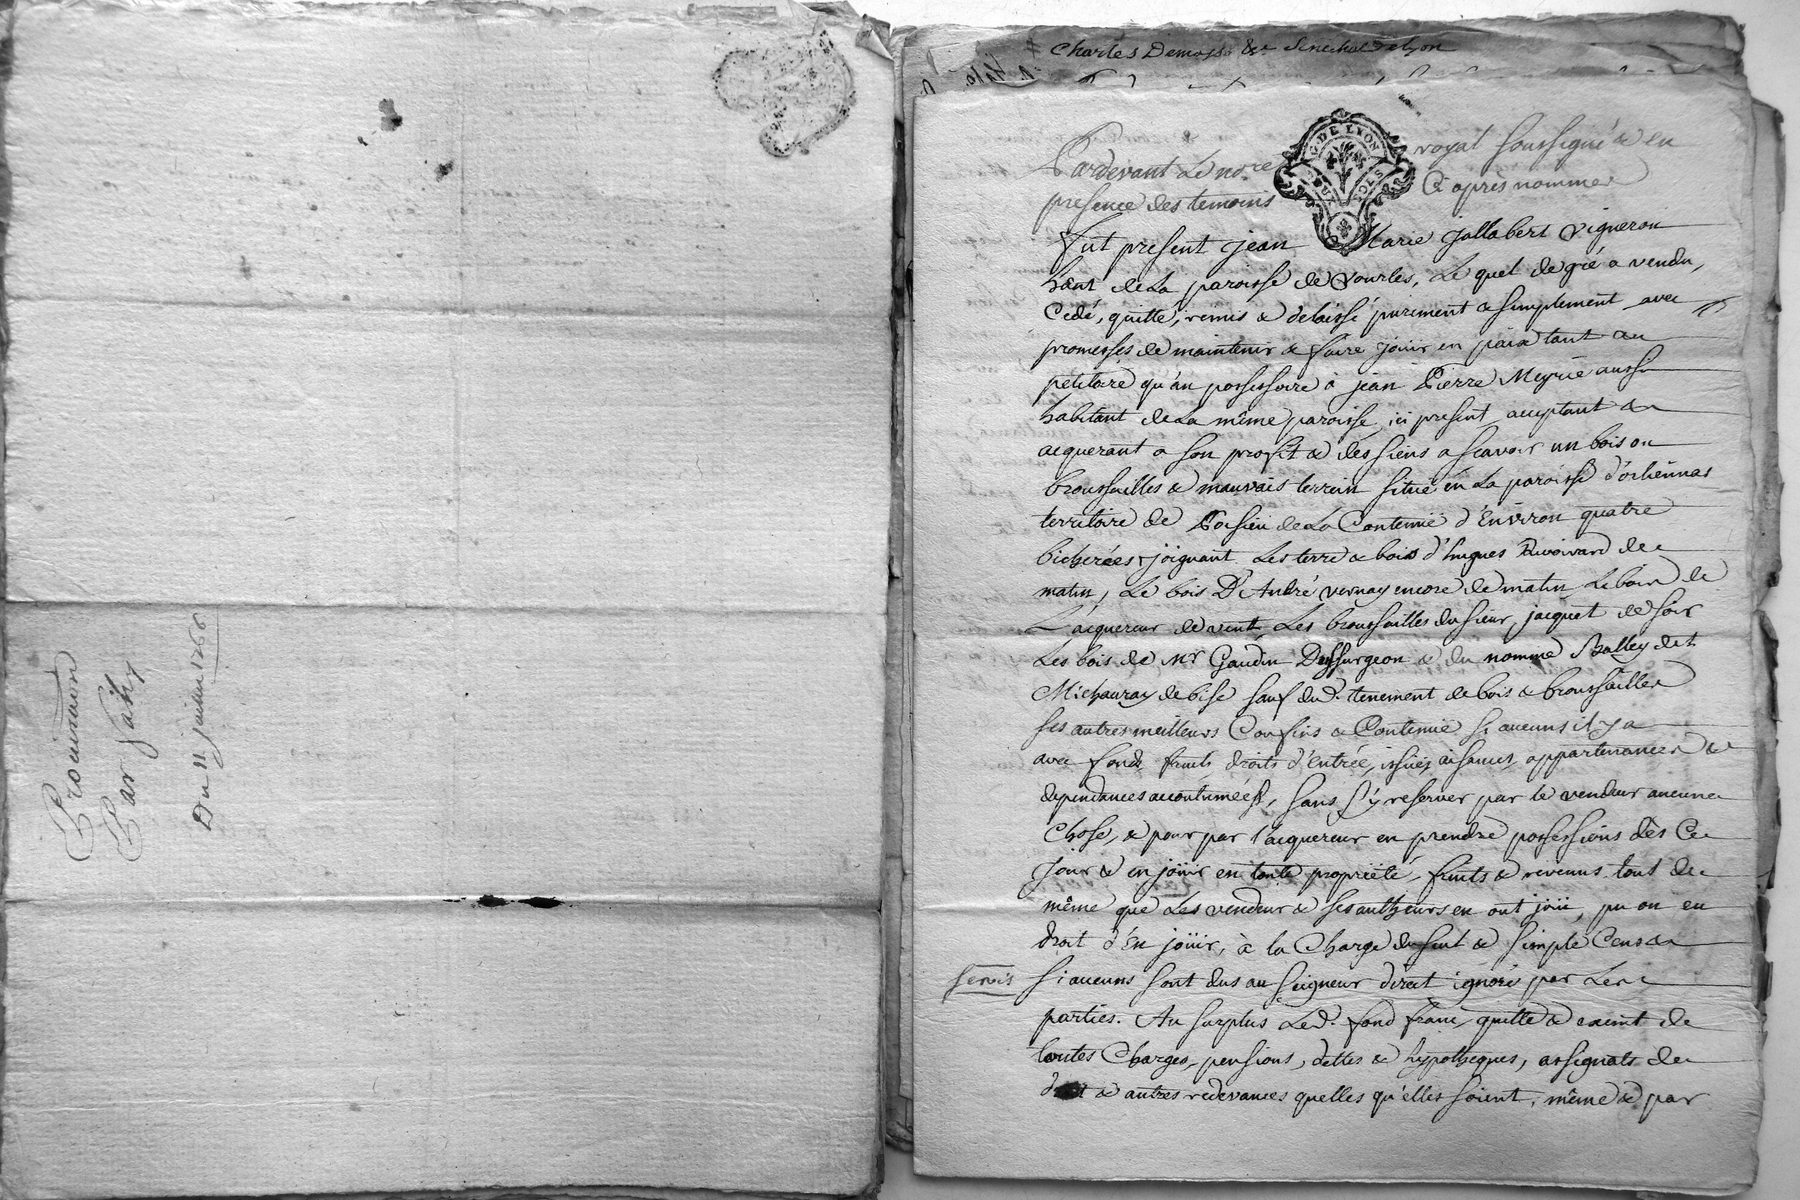 Du 11 juillet 1766
Charles Demasso &c Senechal de Lyon
G. DE LYON
Pardevant Le no.re royal soussigné & en
presence des temoins Ci après nommés
fut present jean Marie jallabert vigneron
hant de La paroisse de vourles, Le quel de gré a vendu,
Cedé, quitté, remis & delaissé purement & simplement avec
promesses de maintenir & faire jouir en paix tant au
petitoire qu'au possessoire à jean Pierre Meynié aussi
habitant de La même paroisse ici present acceptant &
acquerant a son profit & des siens a scavoir un bois ou
broussailles & mauvais terrein situé en La paroisse d'orliennas
territoire de de La Contenüe d'Environ quatre
bicherées joignant Les terre & bois d'hugues Rivoirard de
matin, Le bois D'André vernay encore de matin Le bois de
L'acquereur de vent, Les broussailles du sieur jacquet de soir
Les bois de Mr Gaudin & du nommé dit
Michauray de bise sauf dud. tenement de bois & broussailles
ses autres meilleurs Confins & Contenüe si aucuns il y a
avec fonds, fruits, droits d'entrée, issües, aisances, appartenances &
dependances accoutumées, sans s'y reserver par le vendeur aucune
Chose, & pour par l'acquereur en prendre possessions dès Ce
jour & en joüir en toute proprieté, fruits & revenus tout de
même que Les vendeur & ses autheurs en ont joüi, pu ou eu
droit d'En joüir, à la Charge du seul & simple Cens &
servis si aucuns sont dus au seigneur direct ignoré par Les
parties. Au surplus Led. fond franc, quitte & exemt de
toutes Charges, pensions, dettes & hypotheques, assignats de
& autres redevances quelles qu'elles soient, même & par